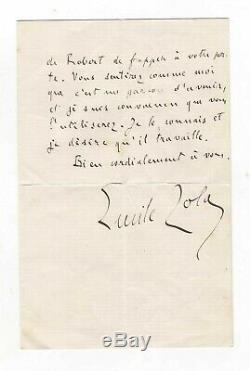 de Robert de frapper à votre por-
te. Vous sentirez comme moi
que c'est un garçon d'avenir,
et je suis convaincu que vous
l'utiliserez. Je le connais et
je désire qu'il travaille.
Bien cordialement à vous.
Emile Zola